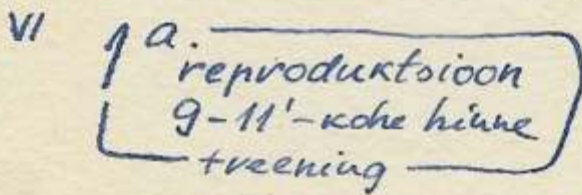 VI a.
reproduktsioon
9-11'-kohe hinne
treening